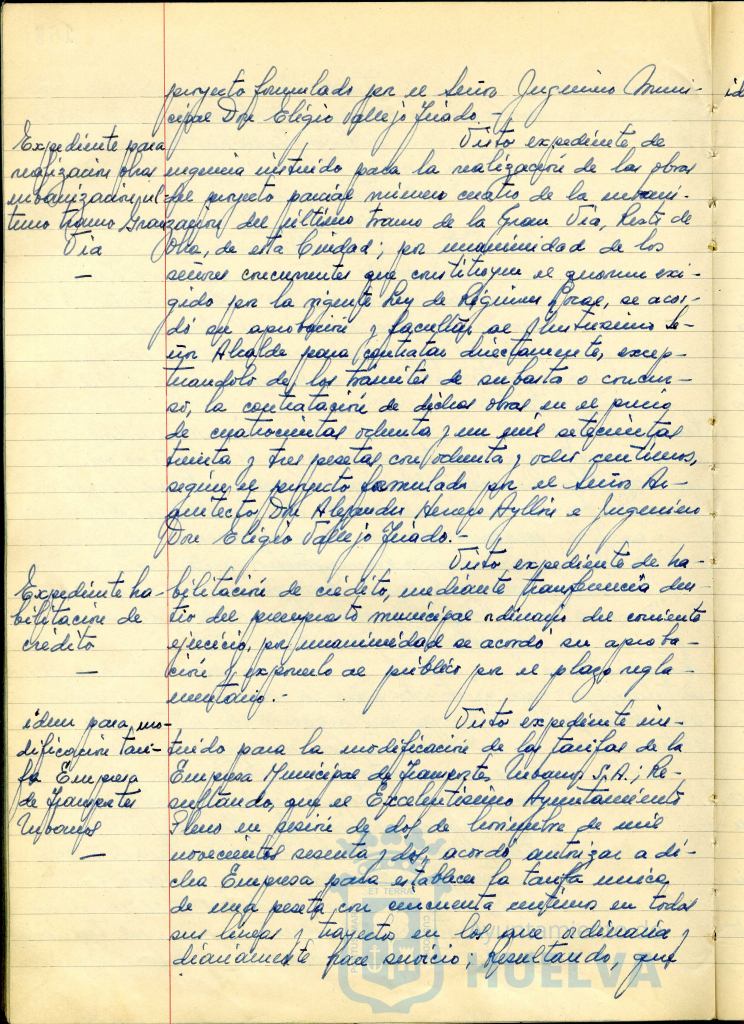 proyecto formulado por el Señor Ingeniero Muni-
cipal Don Eligio Vallejo Triado.-
Expediente para
realización obras
urbanización úl-
timo tramo Gran
Vía
—
Visto expediente de
urgencia instruido para la realización de las obras
del proyecto parcial número cuatro de la urbani-
zación del último tramo de la Gran Vía, Resto de
Olla, de esta Ciudad; por unanimidad de los
señores concurrentes que constituyen el quorum exi-
gido por la vigente Ley de Régimen Local, se acor-
dó su aprobación y facultar al Ilustrísimo Se-
ñor Alcalde para contratar directamente, excep-
tuandolo de los trámites de subasta o concur-
so, la contratación de dichas obras en el precio
de cuatrocientas ochenta y un mil setecientas
treinta y tres pesetas con ochenta y ocho centimos,
según el proyecto formulado por el Señor Ar-
quitecto Don Alejandro Herrero Ayllón e Ingeniero
Don Eligio Vallejo Triado.-
Expediente ha-
bilitación de
crédito
—
Visto, expediente de ha-
bilitación de crédito, mediante transferencia den-
tro del presupuesto municipal ordinario del corriente
ejercicio, por unanimidad se acordó su aproba-
ción y exponerlo al público por el plazo regla-
mentario.-
idem para mo-
dificación tari-
fa Empresa
de Transportes
Urbanos
—
Visto expediente ins-
truido para la modificación de las tarifas de la
Empresa Municipal de Transportes Urbanos S.A.; Re-
sultando, que el Excelentísimo Ayuntamiento
Pleno en sesión de dos de Noviembre de mil
novecientos sesenta y dos, acordó autorizar a di-
cha Empresa para establecer la tarifa única
de una peseta con cincuenta centimos en todas
sus líneas y trayectos en los que ordinaria y
diariamente hace servicio; Resultando, que
Ayuntamiento de
HUELVA